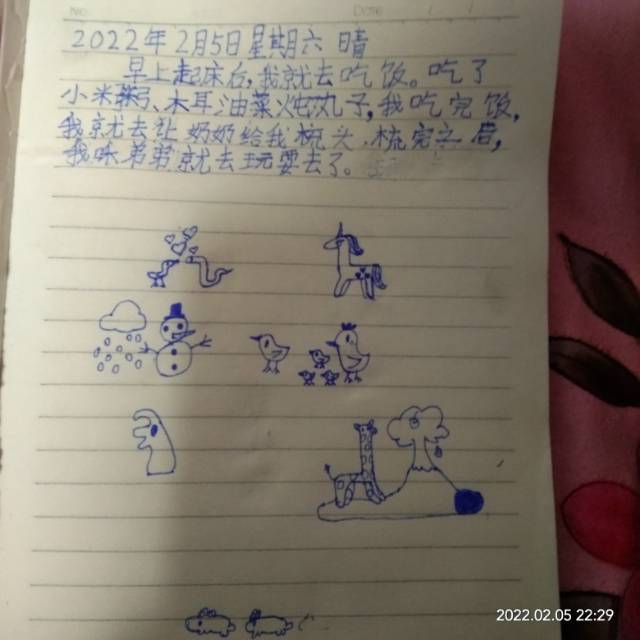 No.
Date
2022年2月5日星期六 晴
早上起床后,我就去吃饭。吃了
小米粥、木耳油菜火屯丸子,我吃完饭,
我就去让奶奶给我梳头.梳完头后,
我和弟弟就去玩耍去了。
2022.02.05 22:29